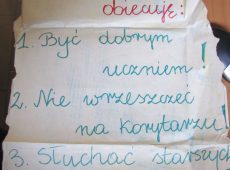 obiecuję:
1. Być dobrym
uczniem!
2. Nie wrzeszczeć
na korytarzu!
3. Słuchać starszych